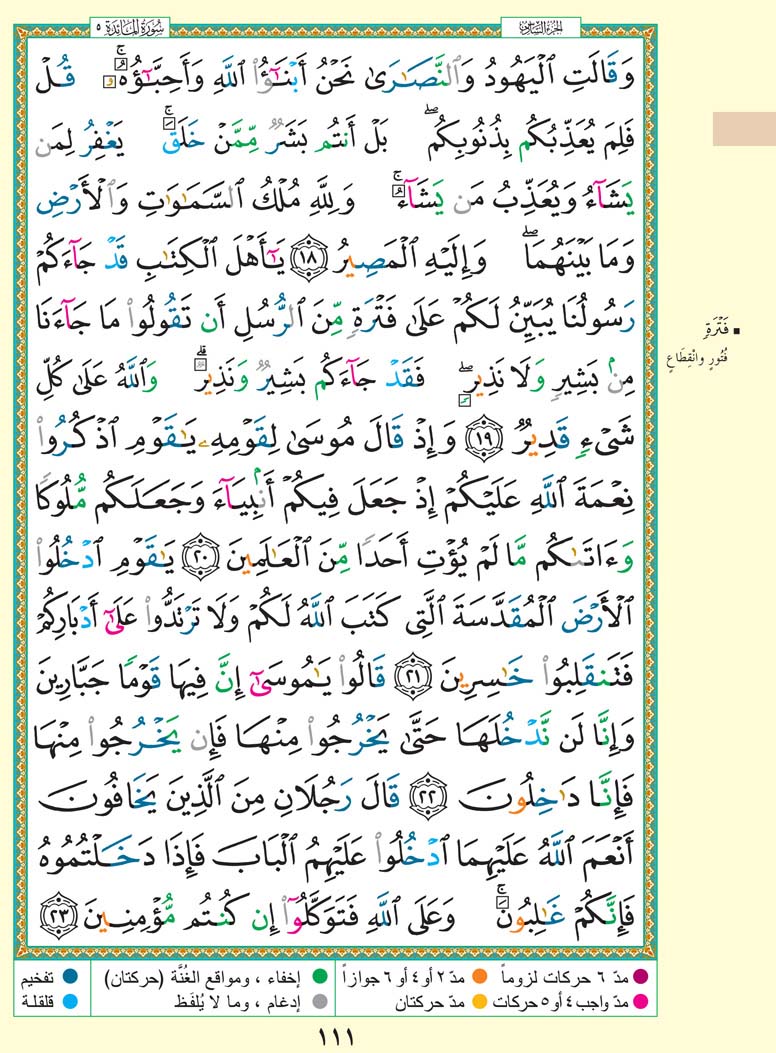 سُورَةُ المَائِدَة ٥
الجزء السادس
وَقَالَتِ ٱلْيَهُودُ وَٱلنَّصَٰرَىٰ نَحْنُ أَبْنَٰٓؤُا۟ ٱللَّهِ وَأَحِبَّٰٓؤُهُۥ ۚ قُلْ
فَلِمَ يُعَذِّبُكُم بِذُنُوبِكُم ۖ بَلْ أَنتُم بَشَرٌ مِّمَّنْ خَلَقَ ۚ يَغْفِرُ لِمَن
يَشَآءُ وَيُعَذِّبُ مَن يَشَآءُ ۚ وَلِلَّهِ مُلْكُ ٱلسَّمَٰوَٰتِ وَٱلْأَرْضِ
وَمَا بَيْنَهُمَا ۖ وَإِلَيْهِ ٱلْمَصِيرُ ١٨ يَٰٓأَهْلَ ٱلْكِتَٰبِ قَدْ جَآءَكُمْ
رَسُولُنَا يُبَيِّنُ لَكُمْ عَلَىٰ فَتْرَةٍ مِّنَ ٱلرُّسُلِ أَن تَقُولُوا۟ مَا جَآءَنَا
مِنۢ بَشِيرٍ وَلَا نَذِيرٍ ۖ فَقَدْ جَآءَكُم بَشِيرٌ وَنَذِيرٌ ۗ وَٱللَّهُ عَلَىٰ كُلِّ
شَىْءٍ قَدِيرٌ ١٩ وَإِذْ قَالَ مُوسَىٰ لِقَوْمِهِۦ يَٰقَوْمِ ٱذْكُرُوا۟
نِعْمَةَ ٱللَّهِ عَلَيْكُمْ إِذْ جَعَلَ فِيكُمْ أَنۢبِيَآءَ وَجَعَلَكُم مُّلُوكًا
وَءَاتَىٰكُم مَّا لَمْ يُؤْتِ أَحَدًا مِّنَ ٱلْعَٰلَمِينَ ٢٠ يَٰقَوْمِ ٱدْخُلُوا۟
ٱلْأَرْضَ ٱلْمُقَدَّسَةَ ٱلَّتِى كَتَبَ ٱللَّهُ لَكُمْ وَلَا تَرْتَدُّوا۟ عَلَىٰٓ أَدْبَارِكُمْ
فَتَنقَلِبُوا۟ خَٰسِرِينَ ٢١ قَالُوا۟ يَٰمُوسَىٰٓ إِنَّ فِيهَا قَوْمًا جَبَّارِينَ
وَإِنَّا لَن نَّدْخُلَهَا حَتَّىٰ يَخْرُجُوا۟ مِنْهَا فَإِن يَخْرُجُوا۟ مِنْهَا
فَإِنَّا دَٰخِلُونَ ٢٢ قَالَ رَجُلَانِ مِنَ ٱلَّذِينَ يَخَافُونَ
أَنْعَمَ ٱللَّهُ عَلَيْهِمَا ٱدْخُلُوا۟ عَلَيْهِمُ ٱلْبَابَ فَإِذَا دَخَلْتُمُوهُ
فَإِنَّكُمْ غَٰلِبُونَ ۚ وَعَلَى ٱللَّهِ فَتَوَكَّلُوٓا۟ إِن كُنتُم مُّؤْمِنِينَ ٢٣
▪ فَتْرَةٍ
فُتُورٍ وانْقِطَاعٍ
● مدّ ٦ حركات لزوماً ● مدّ ٢ أو ٤ أو ٦ جوازاً ● إخفاء ، ومواقع الغُنَّة (حركتان) ● تفخيم
● مدّ واجب ٤ أو ٥ حركات ● مدّ حركتان ● إدغام ، وما لا يُلفَظ ● قلقلة
١١١